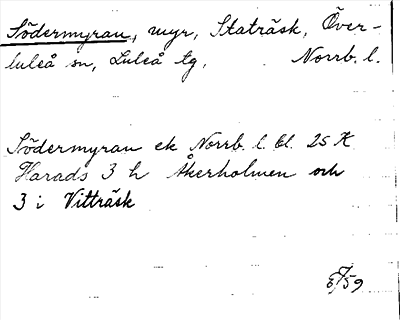 Södermyran, myr, Staträsk, Över-
luleå sn, Luleå tg. Norrb. l.
Södermyran ek Norrb. l. bl. 25 K
Harads 3 h Åkerholmen och
3 i Vitträsk
59